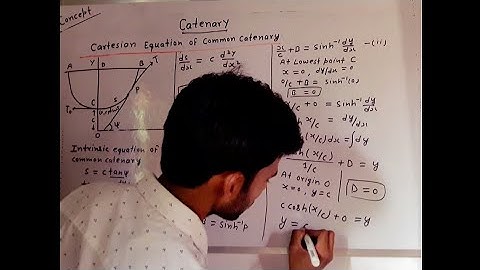 Concept
Catenary
Cartesian Equation of Common Catenary
A Y D B T
P
T₀ C
c
O ψ
Intrinsic equation of
common catenary
s = c tanψ
ds/dx = c d²y/dx²
= sinh⁻¹p
x/c + B = sinh⁻¹ dy/dx -(ii)
At Lowest point C
x = 0, dy/dx = 0
0/c + B = sinh⁻¹(0)
B = 0
x/c + 0 = sinh⁻¹ dy/dx
(x/c) = dy/dx
(x/c) dx = ∫dy
(x/c) / 1/c + D = y
At origin O
x = 0, y = c
D = 0
c cosh(x/c) + 0 = y
y = c